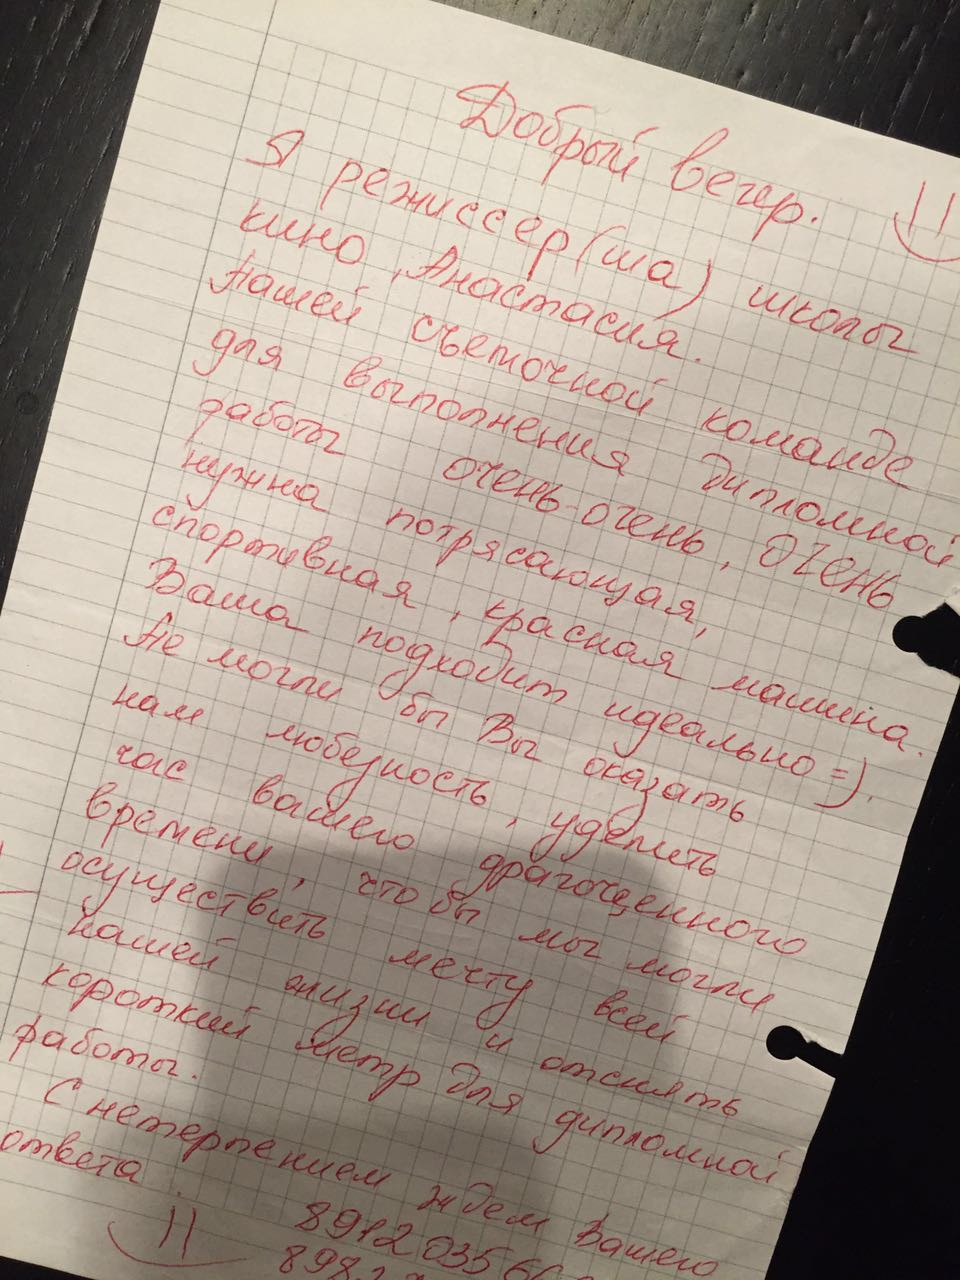 Добрый вечер.
Я режиссер(ша) школы
кино, Анастасия.
Нашей съемочной команде
для выполнения дипломной
работы очень-очень, ОЧЕНЬ
нужна потрясающая,
спортивная, красная машина.
Ваша подходит идеально =).
Не могли бы Вы оказать
нам любезность, уделить
час вашего драгоценного
времени, что бы мы могли
осуществить мечту всей
нашей жизни и отснять
короткий метр для дипломной
работы.
С нетерпением ждем Вашего
ответа.